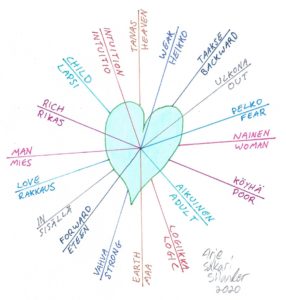 TAIVAS
HEAVEN
WEAK
HEIKKO
TAAKSE
BACKWARD
ULKONA
OUT
PELKO
FEAR
NAINEN
WOMAN
KÖYHÄ
POOR
AIKUINEN
ADULT
LOGIIKKA
LOGIC
EARTH
MAA
VAHVA
STRONG
FORWARD
ETEEN
IN
SISÄLLÄ
LOVE
RAKKAUS
MAN
MIES
RICH
RIKAS
CHILD
LAPSI
INTUITION
INTUITIO
Sakari
2020